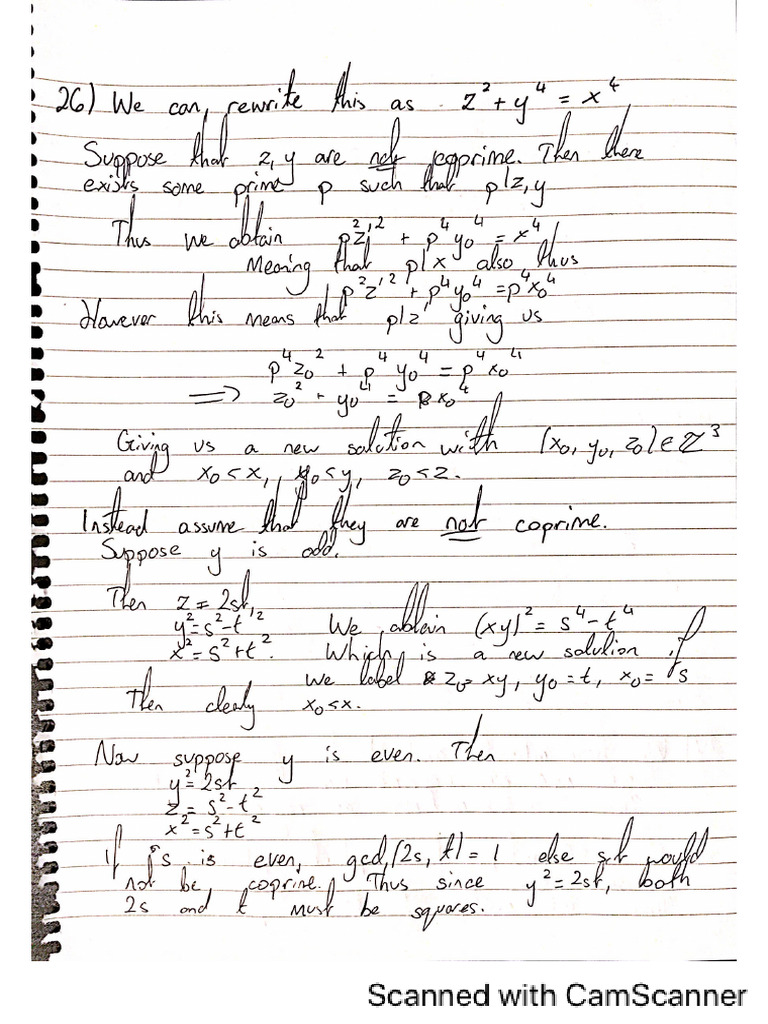 26) We can, rewrite this as z² + y⁴ = x⁴
Suppose that z, y are not coprime. Then there
exists some prime p such that p|z, y
Thus we obtain p²z'² + p⁴y₀⁴ = x⁴
Meaning that p|x also thus
p²z'² + p⁴y₀⁴ = p⁴x₀⁴
However this means that p|z' giving us
p⁴z₀² + p⁴y₀⁴ = p⁴x₀⁴
⟹ z₀² + y₀⁴ = x₀⁴
Giving us a new solution with (x₀, y₀, z₀) ∈ ℤ³
and x₀ < x, y₀ < y, z₀ < z.
Instead assume that they are not coprime.
Suppose y is odd.
Then z = 2st,
y² = s² - t² We obtain (xy)² = s⁴ - t⁴
x² = s² + t². Which is a new solution if
we label z₀ = xy, y₀ = t, x₀ = s
Then clearly x₀ < x.
Now suppose y is even. Then
y² = 2st
z = s² - t²
x² = s² + t²
If s is even, gcd(2s, t) = 1 else s,t would
not be, coprime. Thus since y² = 2st, both
2s and t must be squares.
Scanned with CamScanner